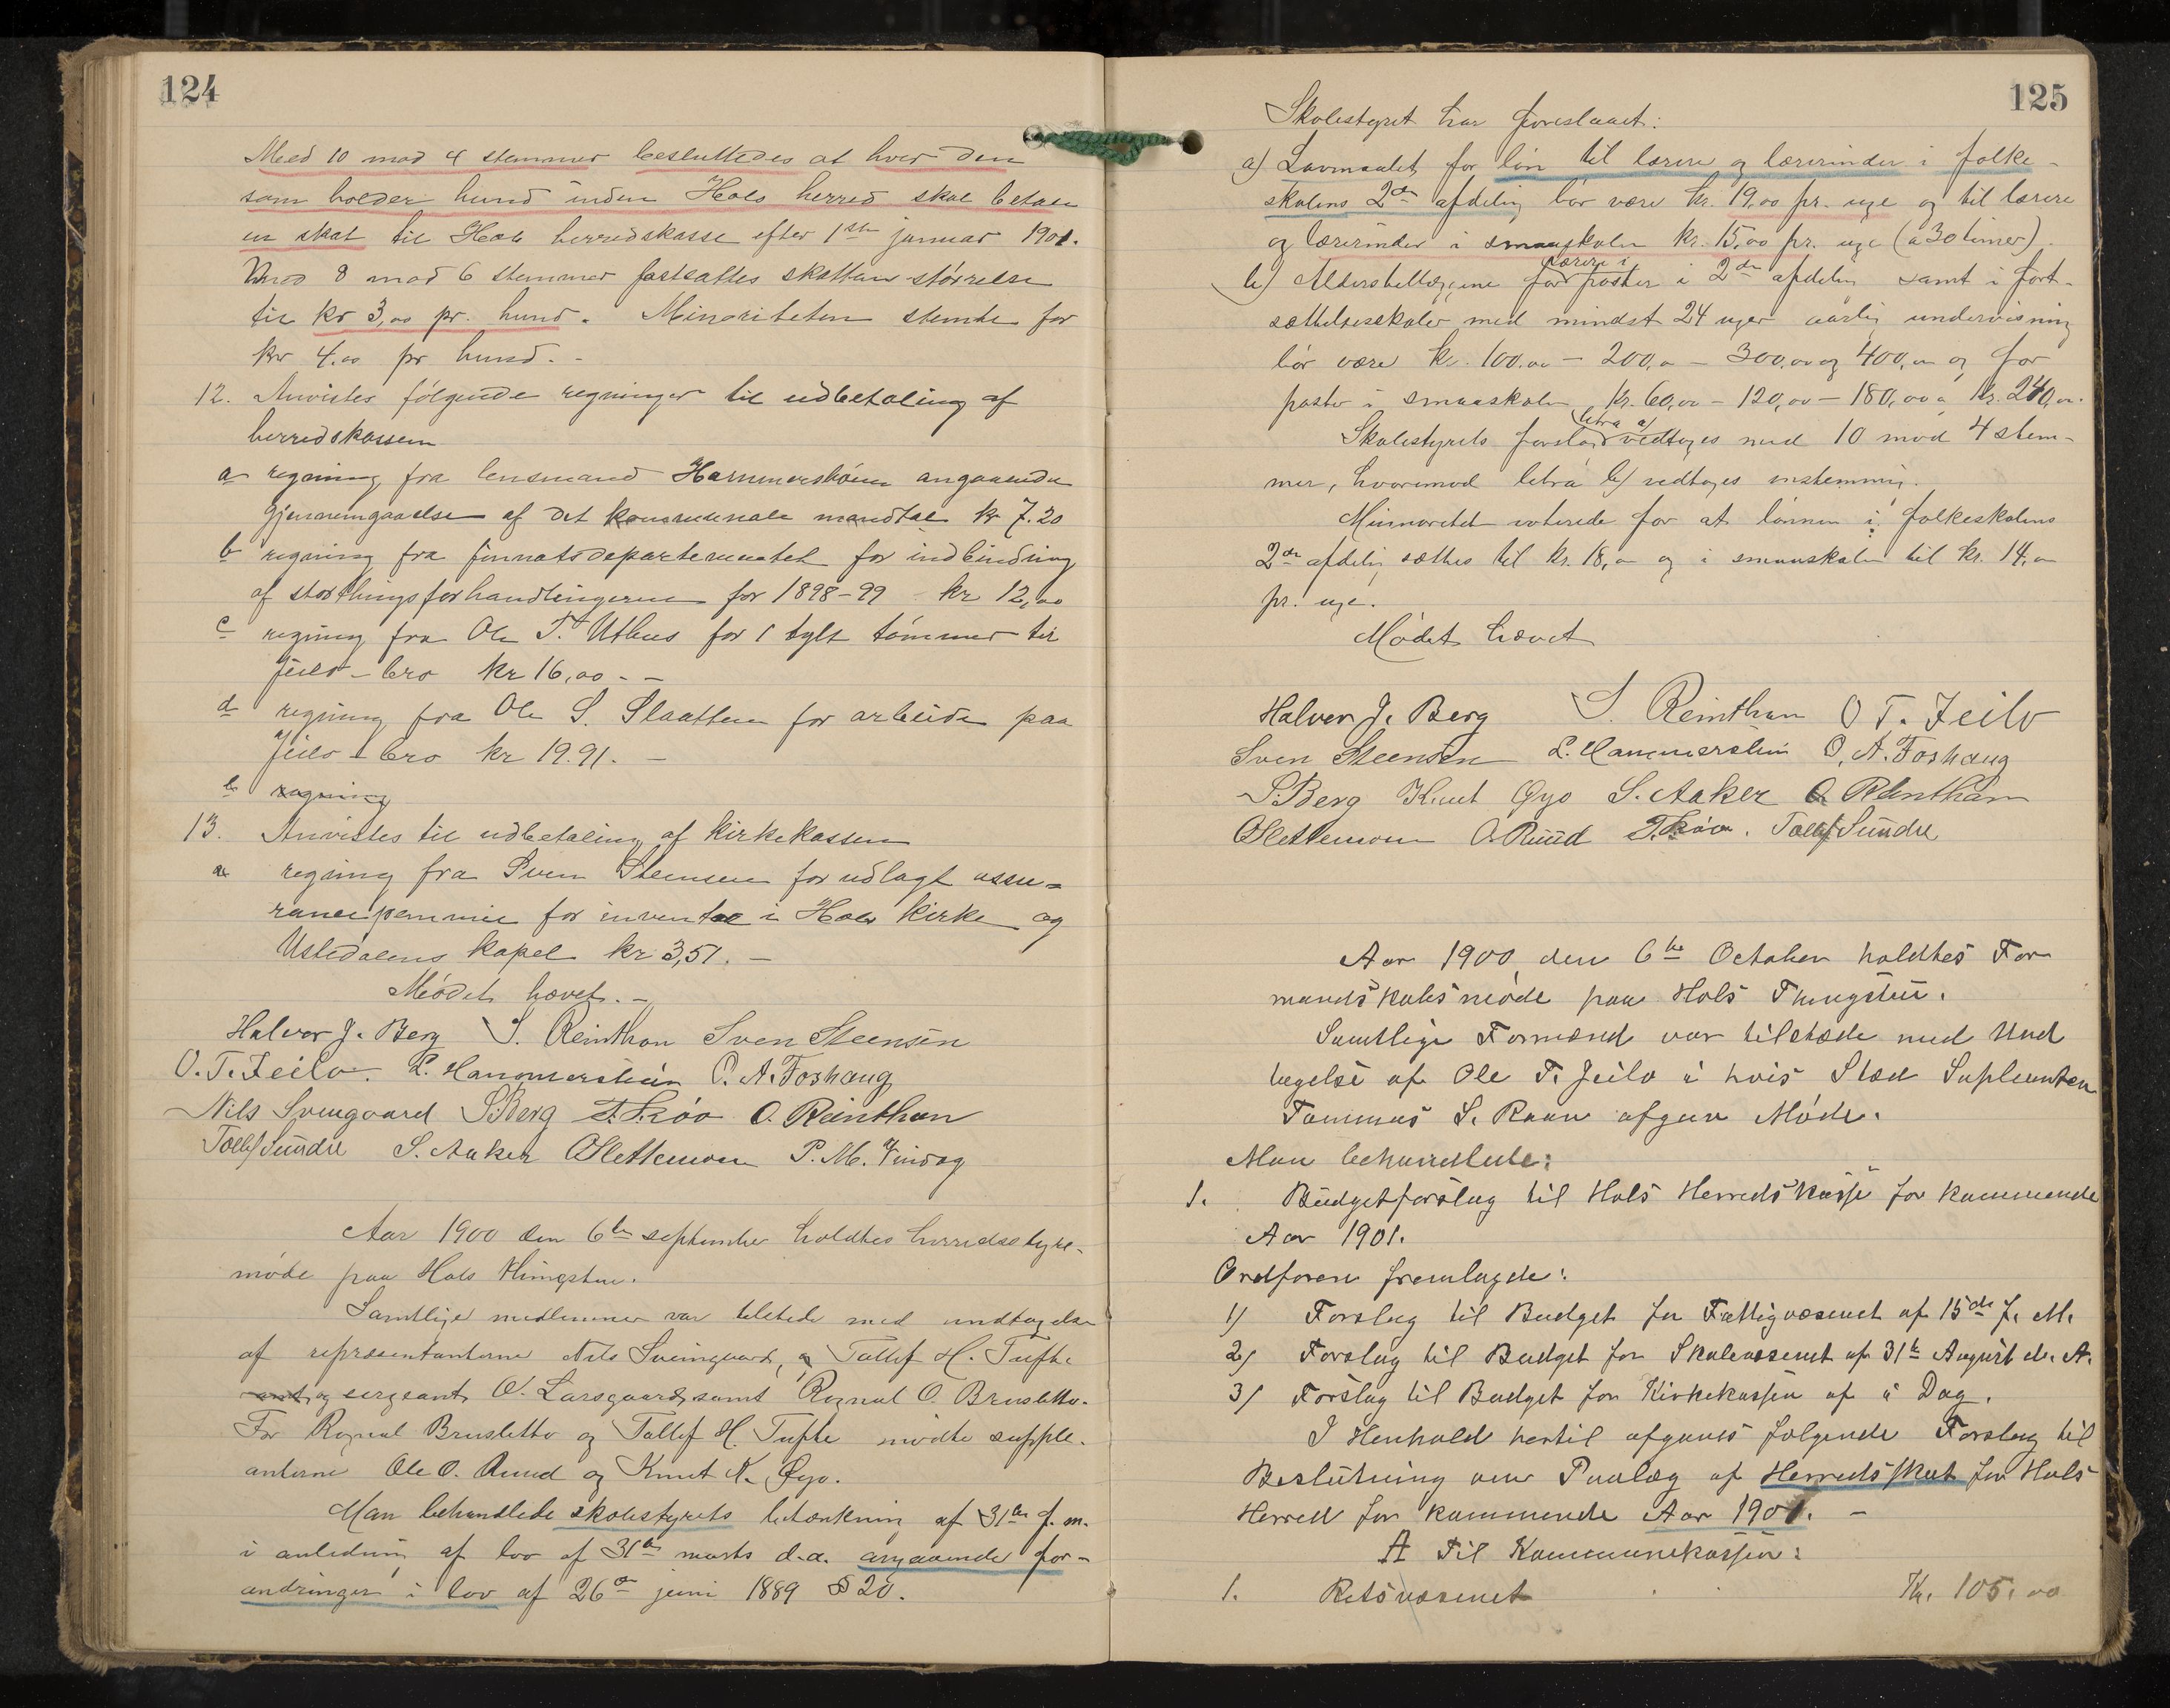 124
Med 10 mod 4 stemmer besluttedes at hver den
som holder hund inden Hols herred skal betale
en skat til Hols herredskasse efter 1ste januar 1901.
Med 8 mod 6 stemmer fastsattes skattens størrelse
til kr 3,00 pr. hund. Minoriteten stemte for
kr 4.00 pr hund. -
12. Anvistes følgende regninger til udbetaling af
herredskassen
a regning fra lensmand Hammersbøen angaaende
gjennemgaaelse af det kommunale mandtal kr 7.20
b regning fra finantsdepartementet for indbinding
af storthingsforhandlingerne for 1898-99 kr 12,00
c regning fra Ole T. Uthus for 1 tylt tømmer til
Jeilo-bro kr 16,00 - -
d regning fra Ole S. Slaatten for arbeide paa
Jeilo-bro kr 19.91. -
e regning
13. Anvistes til udbetaling af kirkekassen
a regning fra Sven Steensen for udlagt assu=
rance for i Hols kirke og
Ustedalens kapel kr 3,51. -
Mødet hævet. -
Halvor J. Berg S. Reinthon Sven Steensen
O. T. Jeilo. L. Hammersbøen O. A. Foshaug
Nils Sveingaard S. Berg T. Skróo O. Reinthon
Tollef Sundre S. Aaker O Slettemoen P. M.
Aar 1900 den 6te september holdtes herredsstyre-
møde paa Hols thingstue.
Samtlige medlemmer var tilstede med undtagelse
af repræsentanterne Nils Sveingaard, og Tollef H. Tufte
og sergeant O. Larsgaard, samt Rognal O. Brusletto.
For Rognal Brusletto og Tollef H. Tufte mødte supple-
anterne Ole O. Ruud og Knut K. Øyo.
Man behandlede skolestyrets betænkning af 31te f. m.
i anledning af lov af 31te marts d.a. angaaende for-
andringer i lov af 26de juni 1889 § 20.
125
Skolestyret har foreslaaet:
a) Lavmaalet for løn til lærere og lærerinder i folke-
skolens 2den afdeling bør være kr. 19,00 pr. uge og til lærere
og lærerinder i smaaskolen kr. 15,00 pr. uge (a 30 timer).
lærere i
b) Alderstillæggene for poster i 2den afdeling samt i fort-
sættelsesskoler med mindst 24 uger aarlig undervisning
bør være kr. 100.00 - 200,00 - 300,00 og 400,00 og for
poster i smaaskolen kr. 60,00 - 120,00 - 180,00 a kr. 240,00.
letra a)
Skolestyrets forslag vedtoges med 10 mod 4 stem-
mer, hvorimod letra b) vedtoges enstemmig.
Minoritet voterede for at lønnen i folkeskolens
2den afdeling sættes til kr. 18,00 og i smaaskolen til kr. 14,00
pr. uge.
Mødet hævet
Halvor J. Berg S. Reinthon O T. Jeilo
Sven Steensen L. Hammersbøen O. A. Foshaug
S. Berg Knut Øyo S. Aaker O. Reinthon
O Slettemoen O. Ruud T. Skróo. Tollef Sundre
Aar 1900, den 6te October holdtes For
mandskabsmøde paa Hols Thingstue.
Samtlige Formænd var tilstæde med Und
tagelse af Ole T. Jeilo i hvis Sted Supleanten
Tommas S. Raaen afgav Møde.
Man behandlede:
1. Budgetforslag til Hols Herredskasse for kommende
Aar 1901.
Ordføren fremlagde:
1) Forslag til Budget for Fattigvæsenet af 15de f. M.
2) Forslag til Budget for Skolevæsenet af 31te August d. A.
3) Forslag til Budget for Kirkekassen af i Dag.
I Henhold hertil afgaves følgende Forslag til
Beslutning om Paalæg af Herredsskat for Hols
Herred for kommende Aar 1901. -
A Til Kommunekassen:
1. Retsvæsenet Kr. 105.00